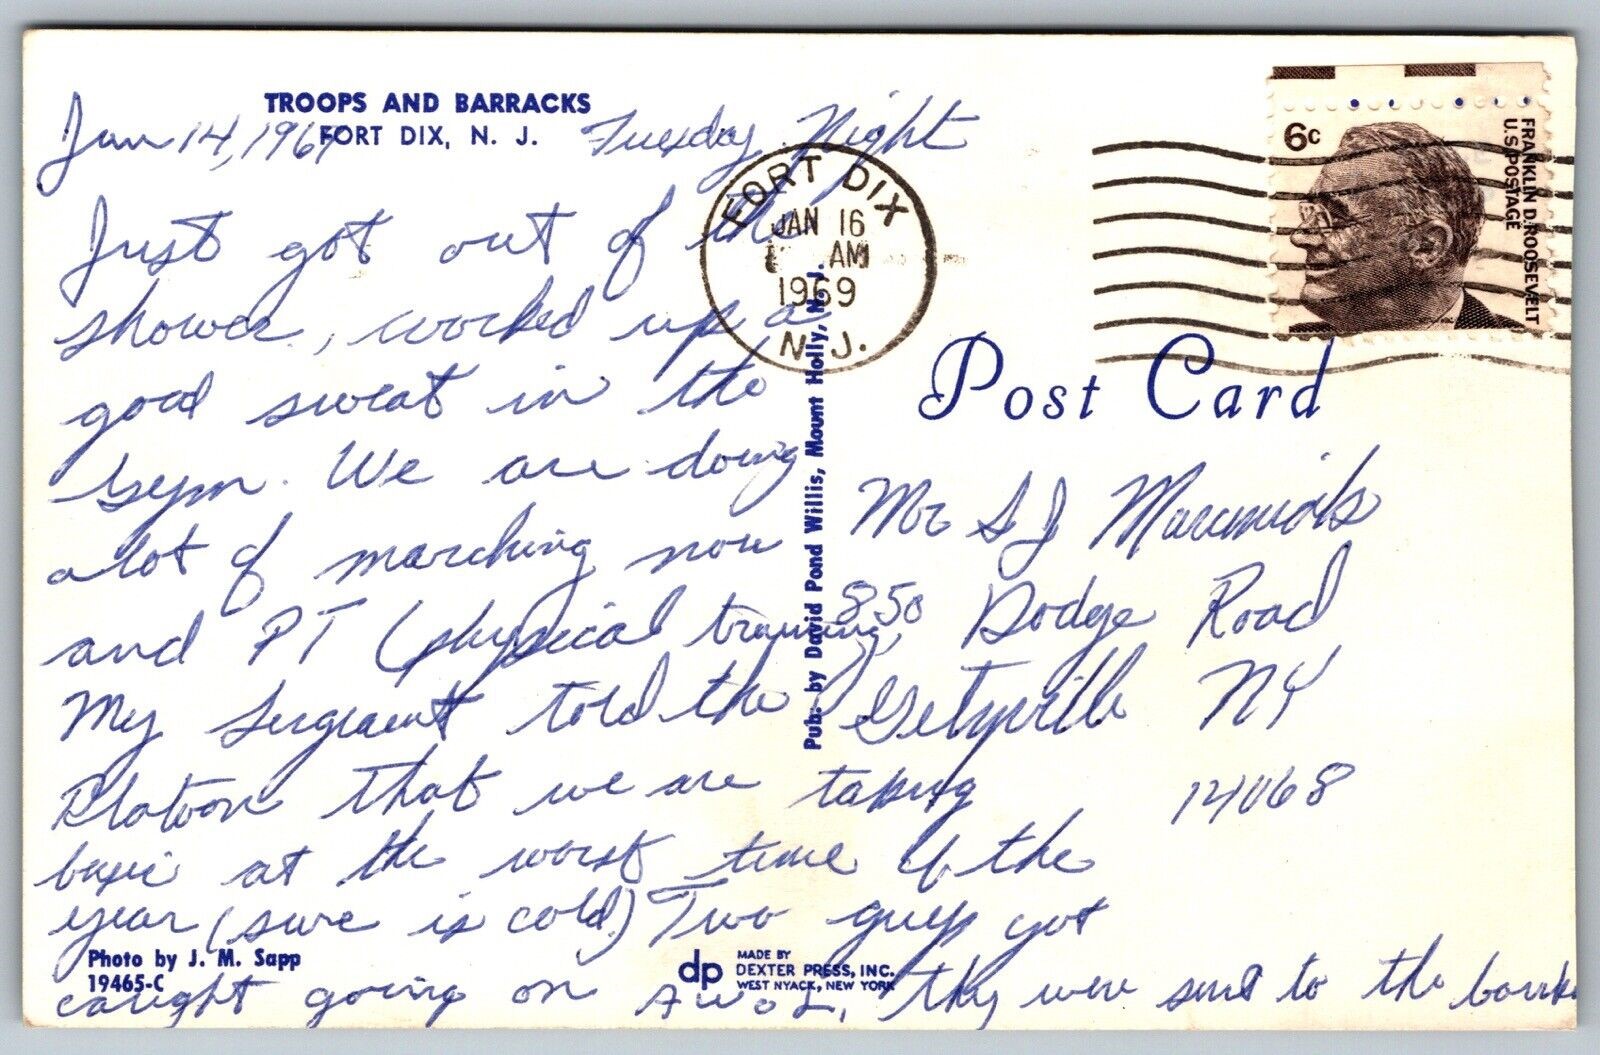 TROOPS AND BARRACKS
FORT DIX, N. J.
Jan 14, 1969 Tuesday Night
Just got out of the
shower, worked up a
good sweat in the
gym. We are doing
a lot of marching now
and PT (physical training)
My Sergeant told the
Platoon that we are taking
basic at the worst time of the
year (sure is cold) Two guys got
caught going on AWOL, they were sent to the
Photo by J. M. Sapp
19465-C
dp MADE BY
DEXTER PRESS, INC.
WEST NYACK, NEW YORK
Pub. by David Pond Willis, Mount Holly, N. J.
FORT DIX
JAN 16
AM
1969
N. J.
6c
FRANKLIN D. ROOSEVELT
U.S. POSTAGE
Post Card
Mr S J
850 Dodge Road
Getzville NY
14068